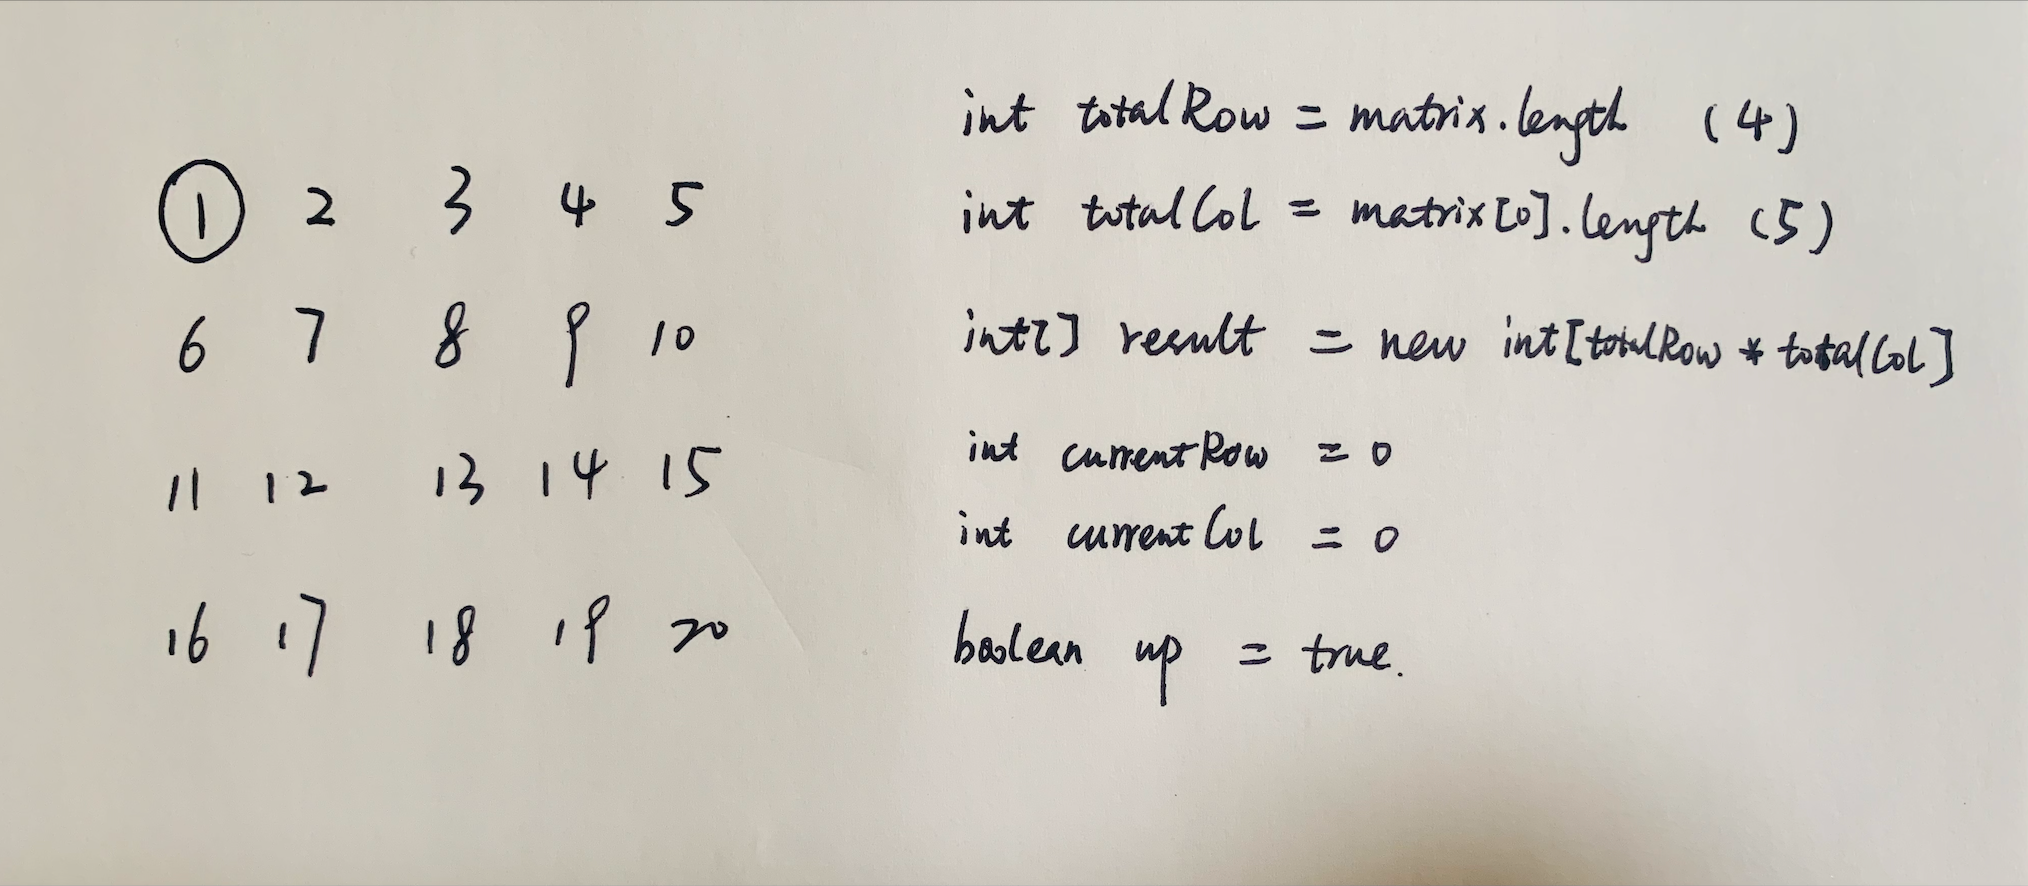 1 2 3 4 5
6 7 8 9 10
11 12 13 14 15
16 17 18 19 20
int totalRow = matrix.length (4)
int totalCol = matrix[0].length (5)
int[] result = new int[totalRow * totalCol]
int currentRow = 0
int currentCol = 0
boolean up = true.